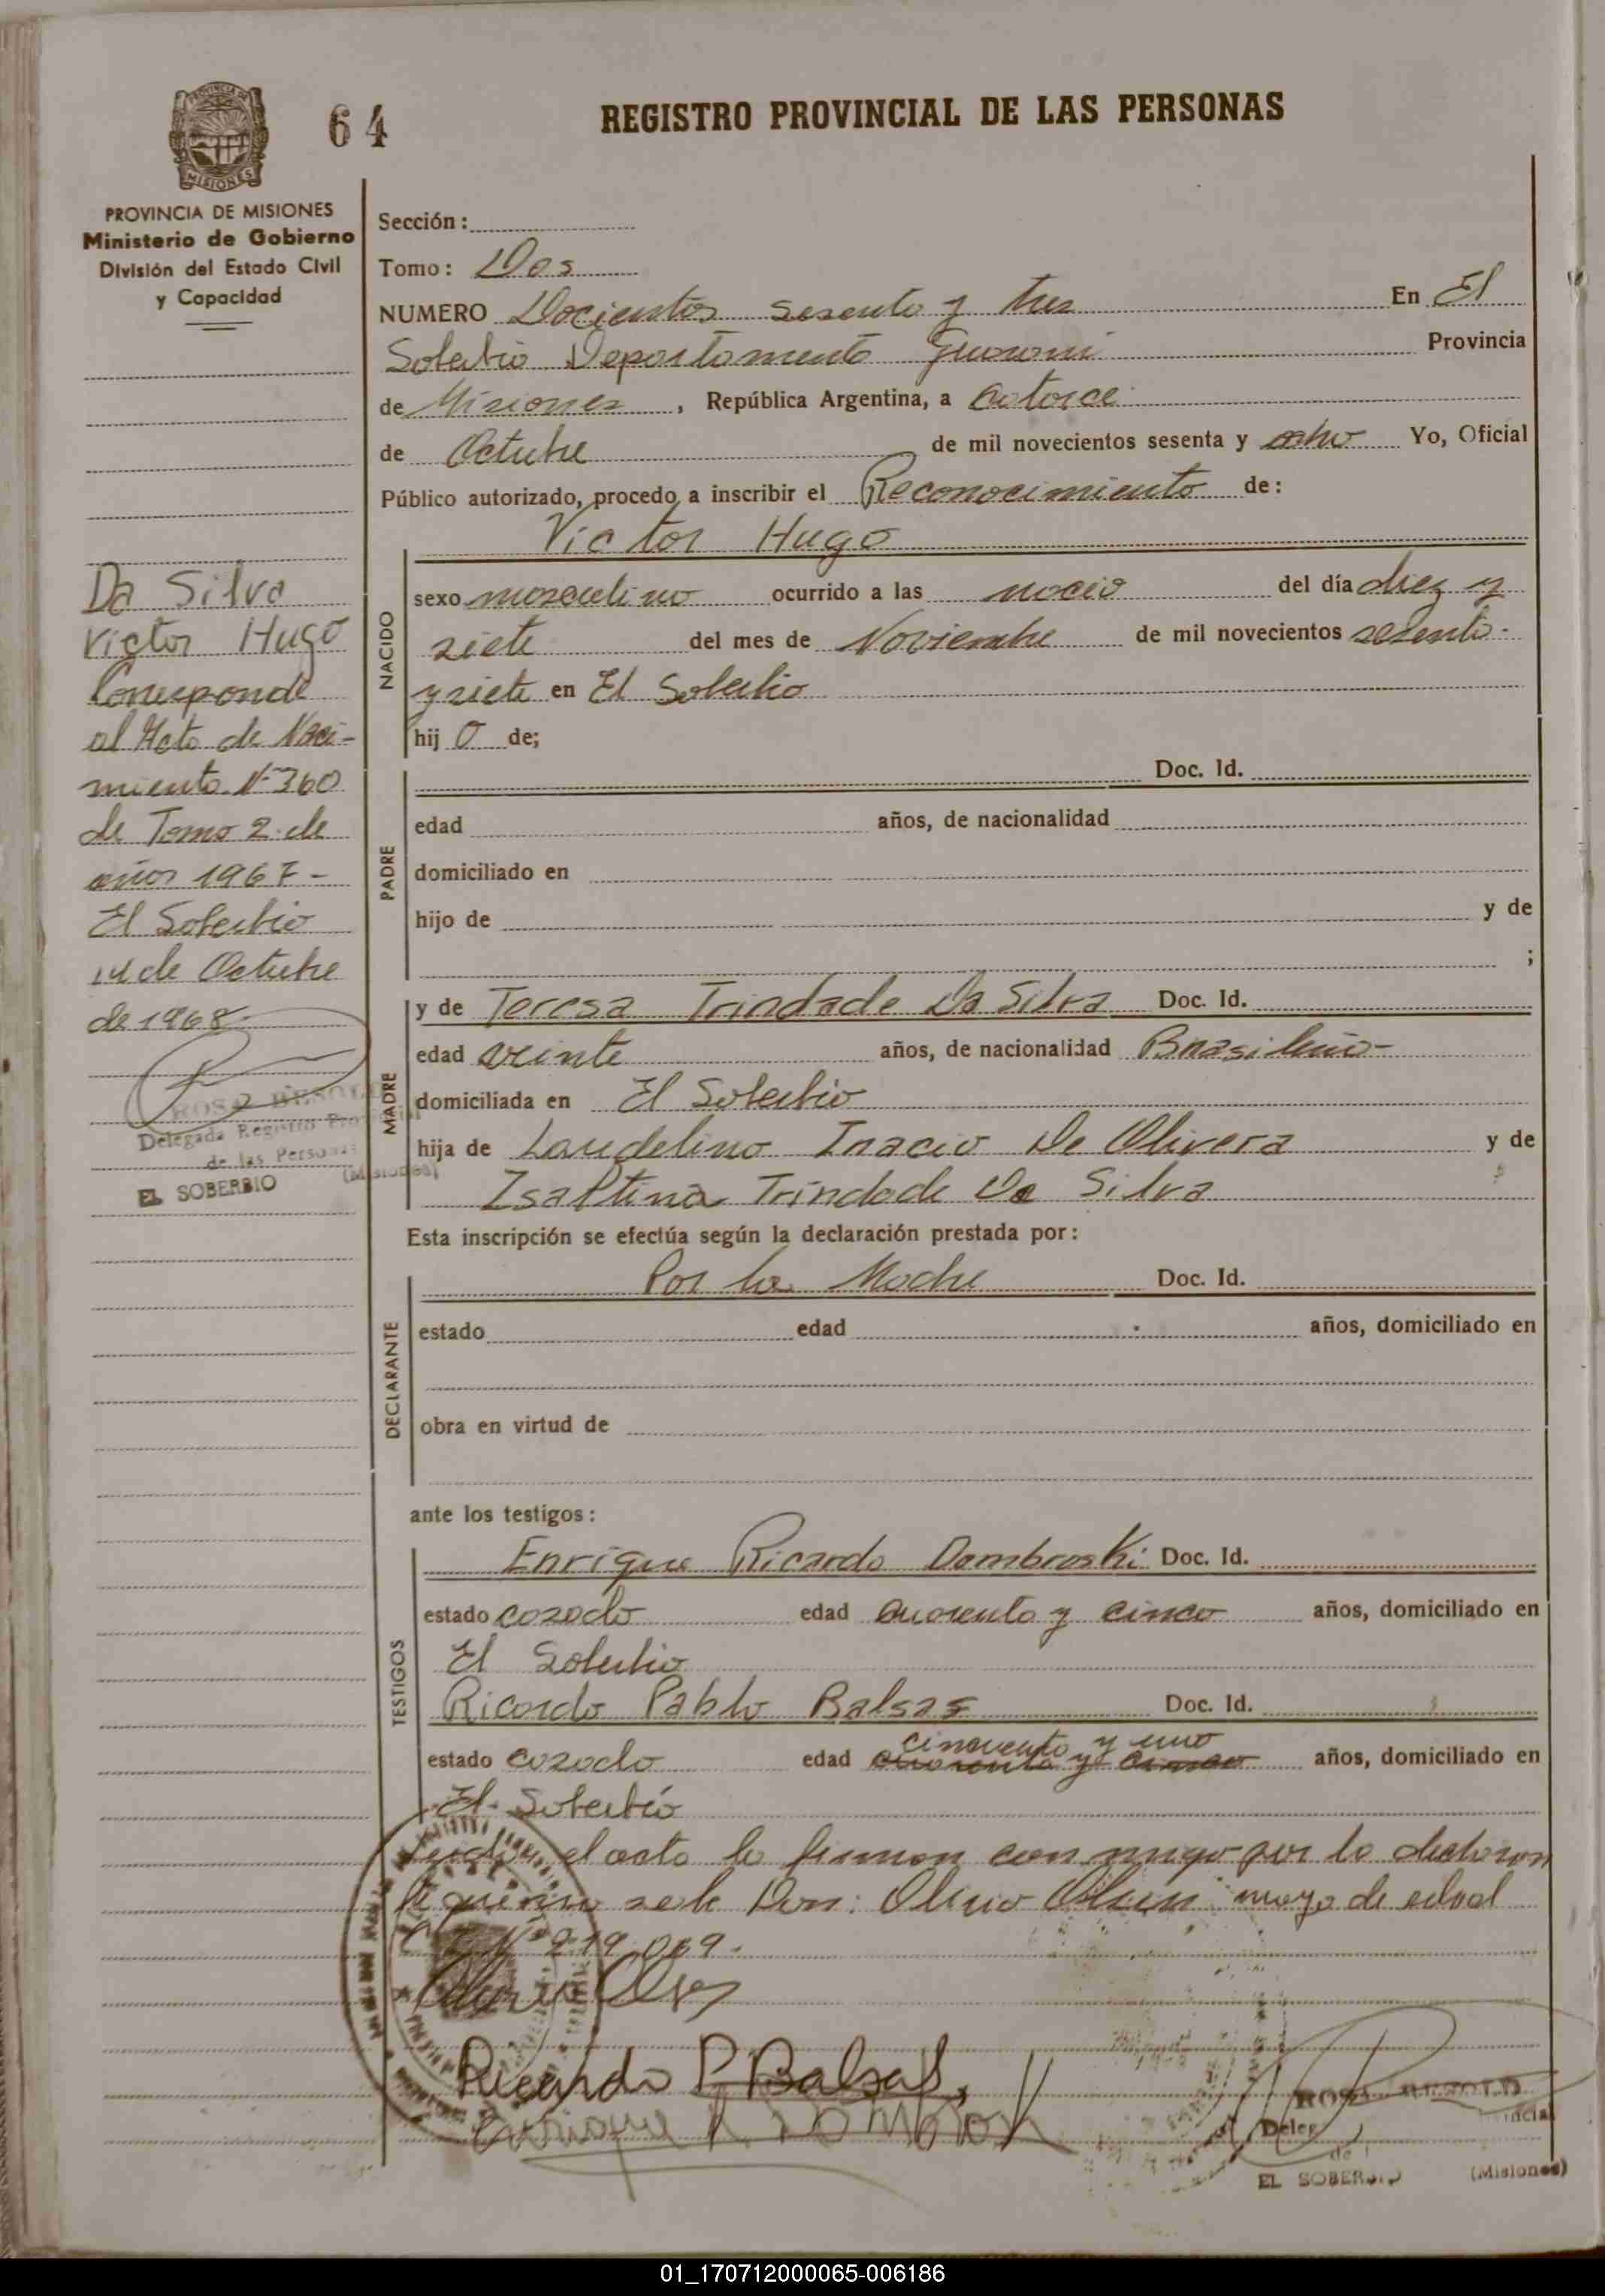 64
REGISTRO PROVINCIAL DE LAS PERSONAS
MISIONES
PROVINCIA DE MISIONES
Ministerio de Gobierno
División del Estado Civil
y Capacidad
Da Silva
Victor Hugo
Corresponde
al Acta de Naci-
miento Nº 360
de Tomo 2 de
años 1967 -
El Soberbio
14 de Octubre
de 1968.
ROSA BESOLD
Delegada Registro Pro
de las Personas
(Misiones)
EL SOBERBIO
Sección:
Tomo: Dos
NUMERO Docientos sesenta y tres En El
Soberbio Departamento Guarani Provincia
de Misiones, República Argentina, a Catorce
de Octubre de mil novecientos sesenta y ocho Yo, Oficial
Público autorizado, procedo a inscribir el Reconocimiento de:
Victor Hugo
NACIDO
sexo masculino ocurrido a las nacio del día diez y
siete del mes de Noviembre de mil novecientos sesenta
y siete en El Soberbio
hij o de;
PADRE
Doc. Id.
edad años, de nacionalidad
domiciliado en
hijo de y de
;
MADRE
y de Teresa Trindade Da Silva Doc. Id.
edad veinte años, de nacionalidad Brasileña-
domiciliada en El Soberbio
hija de Laudelino Inacio De Olivera y de
Trindade Da Silva
Esta inscripción se efectúa según la declaración prestada por:
DECLARANTE
Por la Madre Doc. Id.
estado edad años, domiciliado en
obra en virtud de
ante los testigos:
TESTIGOS
Enrique Ricardo Dombroski Doc. Id.
estado casado edad cuarenta y cinco años, domiciliado en
El Soberbio
Ricardo Pablo Balsas Doc. Id.
cincuenta y uno
estado casado edad cuarenta y cinco años, domiciliado en
El Soberbio
Leida el acta la firman con migo por la
Don: Olivio mayo de edad
C. I. Nº 219.069.
Ricardo P. Balsas
Enrique R. Dombroski
ROSA BESOLD
Deleg
de
EL SOBERBIO (Misiones)
01_170712000065-006186